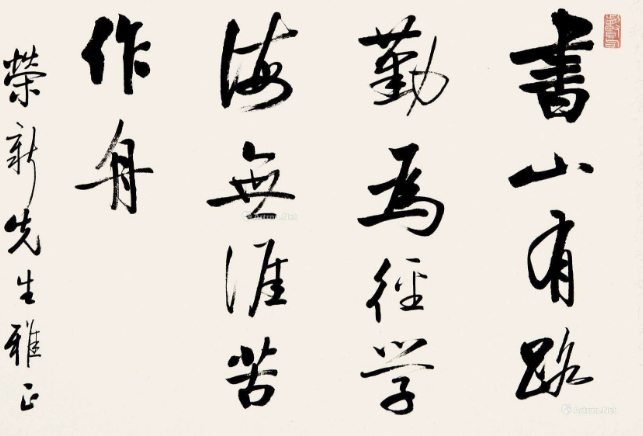 書山有路
勤為徑學
海無涯苦
作舟
榮新先生雅正